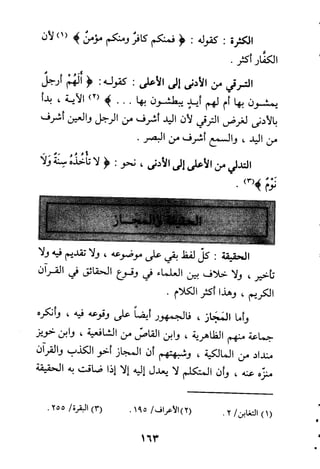 الكثرة : كقوله : ﴿ فمنكم كافر ومنكم مؤمن ﴾ (١) لأن
الكفار أكثر .
الترقي من الأدنى إلى الأعلى : كقوله : ﴿ أَلَهُمْ أرجل
يمشون بها أم لهم أيد يبطشون بها . . . ﴾ (٢) الآية ، بدأ
بالأدنى لغرض الترقي لأن اليد أشرف من الرجل والعين أشرف
من اليد ، والسمع أشرف من البصر .
التدلي من الأعلى إلى الأدنى ، نحو : ﴿ لَا تَأْخُذُهُ سِنَةٌ وَلَا
نَوْمٌ ﴾(٣) .
الحقيقة والمجاز
الحقيقة : كلّ لفظ بقي على موضوعه ، ولا تقديم فيه ولا
تأخير ، ولا خلاف بين العلماء في وقوع الحقائق في القرآن
الكريم ، وهذا أكثر الكلام .
وأما المَجَاز ، فالجمهور أيضاً على وقوعه فيه ، وأنكره
جماعة منهم الظاهرية ، وابن القاصّ من الشافعية ، وابن خويز
منداد من المالكية ، وشبهتهم أن المجاز أخو الكذب والقرآن
منزّه عنه ، وأن المتكلم لا يعدل إليه إلا إذا ضاقت به الحقيقة
(١) التغابن/ ٢ . (٢) الأعراف/ ١٩٥ . (٣) البقرة/ ٢٥٥ .
١٦٣